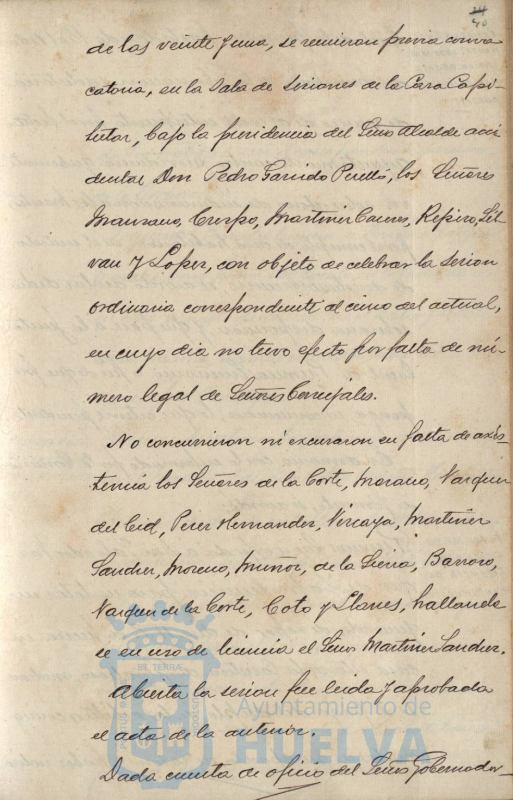 40
de las veinte y una, se reunieron previa convo
catoria, en la Sala de Sesiones de la Casa Capi-
tular, bajo la presidencia del Señor Alcalde acci
dental Don Pedro Garrido Perelló, los Señores
Manzano, Crespo, Martinez Caceres, Repiso, Sil-
van y Lopez, con objeto de celebrar la sesion
ordinaria correspondiente al cinco del actual,
en cuyo dia no tuvo efecto por falta de nú-
mero legal de Señores Concejales.
No concurrieron ni excusaron su falta de asis-
tencia los Señores de la Corte, Morano, Vazquez
del Cid, Perez Hernandez, Vizcaya, Martinez
Sanchez, Moreno, Muñoz, de la Sierra, Barroso,
Vazquez de la Corte, Coto y Llanes, hallando
se en uso de licencia el Señor Martinez Sanchez.
Abierta la sesion fue leida y aprobada
el acta de la anterior.
Dada cuenta de oficio del Señor Gobernador
Ayuntamiento de
HUELVA